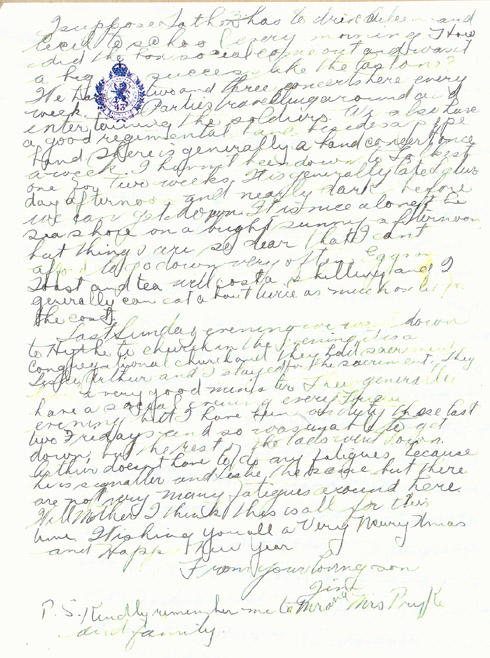 I suppose Father has to drive Eileen and
Cecil to school every morning. How
did the box social come out and was it
a big success like the last one?
We have two and three concerts here every
week. Parties travelling around and
entertaining the soldiers. We also have
a good regimental band besides a pipe
band. There is generally a band concert once
a week. I haven't been down to
one for two weeks. It is generally late
day afternoon and nearly dark before
we can get down. It is nice along the
sea shore on a bright sunny afternoon
but things are so dear that I can't
afford to go down very often. Eggs on
toast and tea will cost a shilling and I
generally can eat about twice as much as
the cost.
Last Sunday evening we went down
to Hythe to church in the evening. It is a
Congregational church and they held sacrament
Arthur and I stayed for the sacrament. They
a very good minister. They generally
have a social evening every Friday
evening but I have been on duty these last
two Fridays and so was unable to get
down, but the rest of the lads went down.
Arthur doesn't have to do any fatigues because
he is a but there
are not very many fatigues around here.
Well Mother I think this is all for this
time. Wishing you all a Very Merry Xmas
and Happy New Year
From your loving son
Jim
P.S. Kindly remember me to Mr and Mrs Pryke
and family.